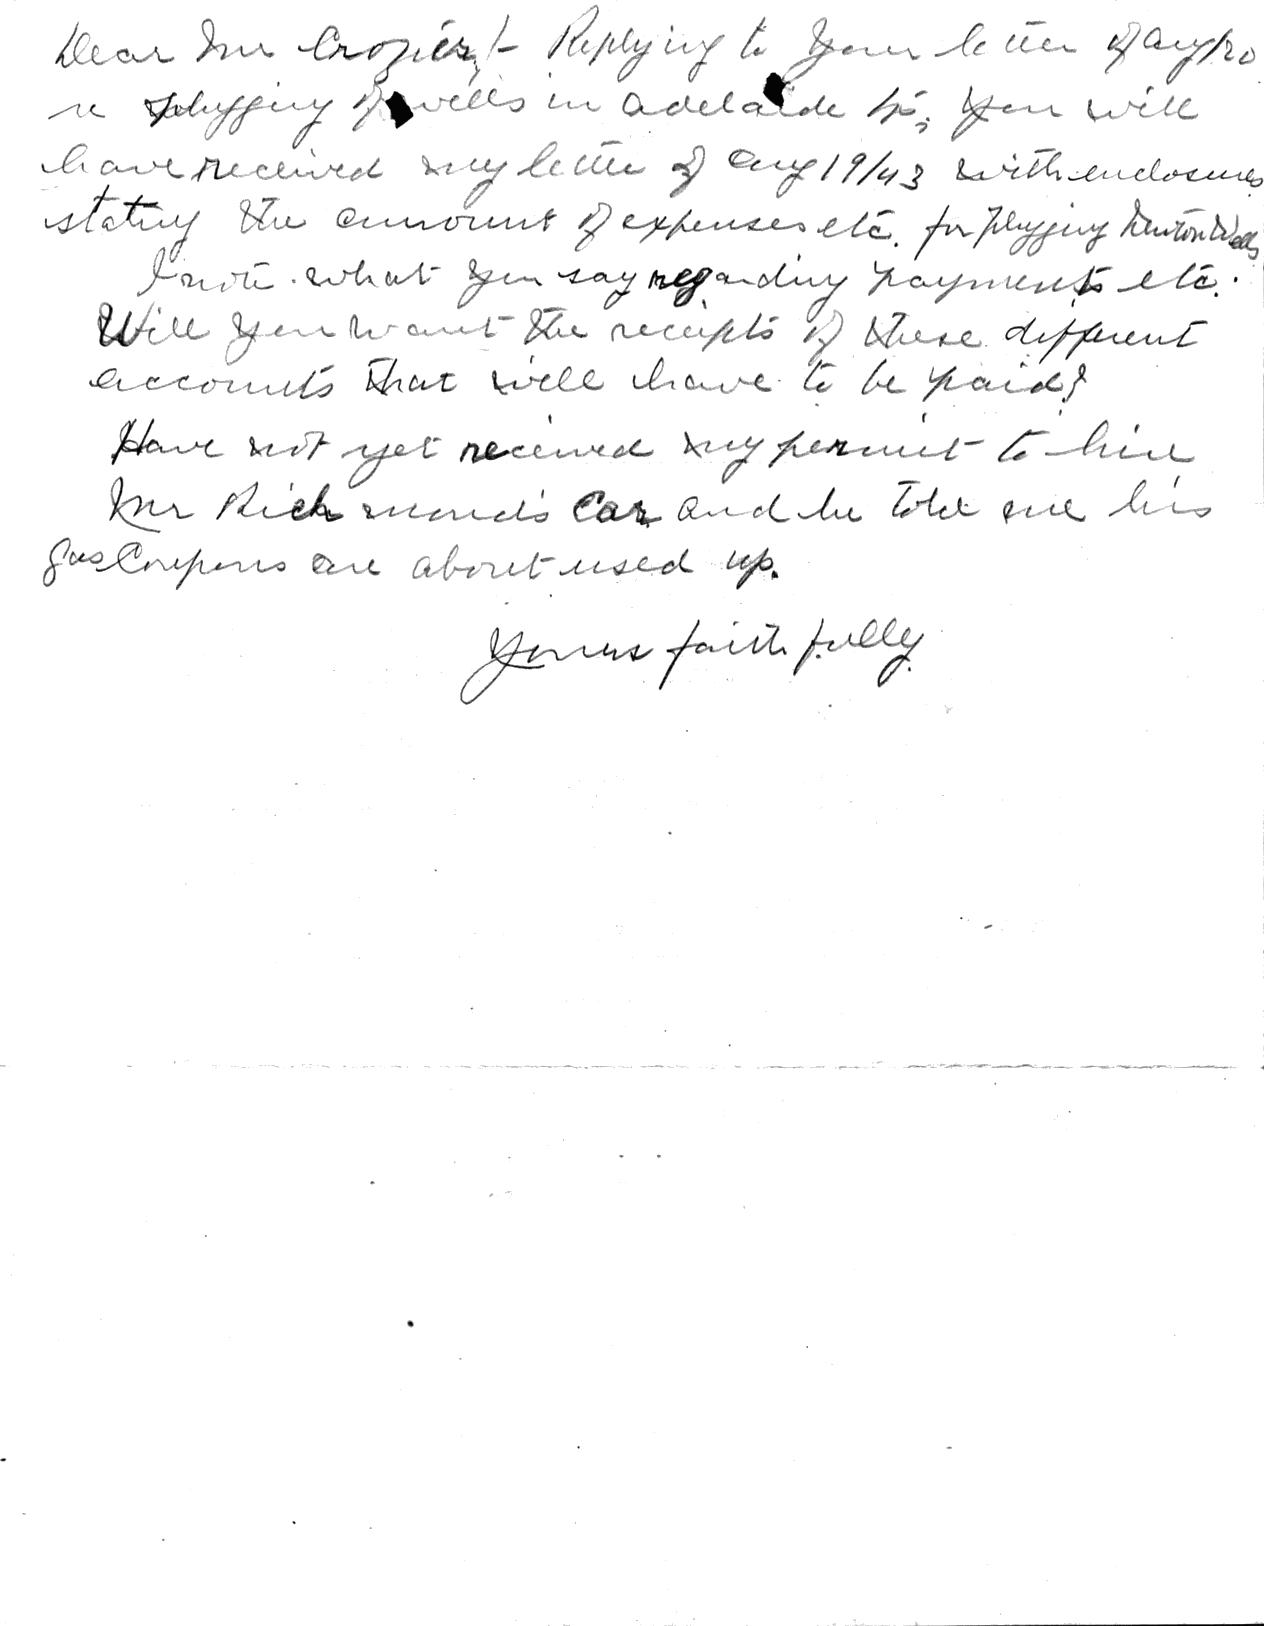 Dear Mr Crozier,/- Replying to your letter of Aug/20
re plugging of wells in Adelaide Tp; you will
have received my letter of Aug 19/43 with enclosures
stating the amount of expenses etc. for plugging Newton Wells
I note what you say regarding payments etc.
Will you want the receipts of these different
accounts that will have to be paid?
Have not yet received my permit to hire
Mr Richmond's Car and he told me his
gas Coupons are about used up.
Yours faithfully